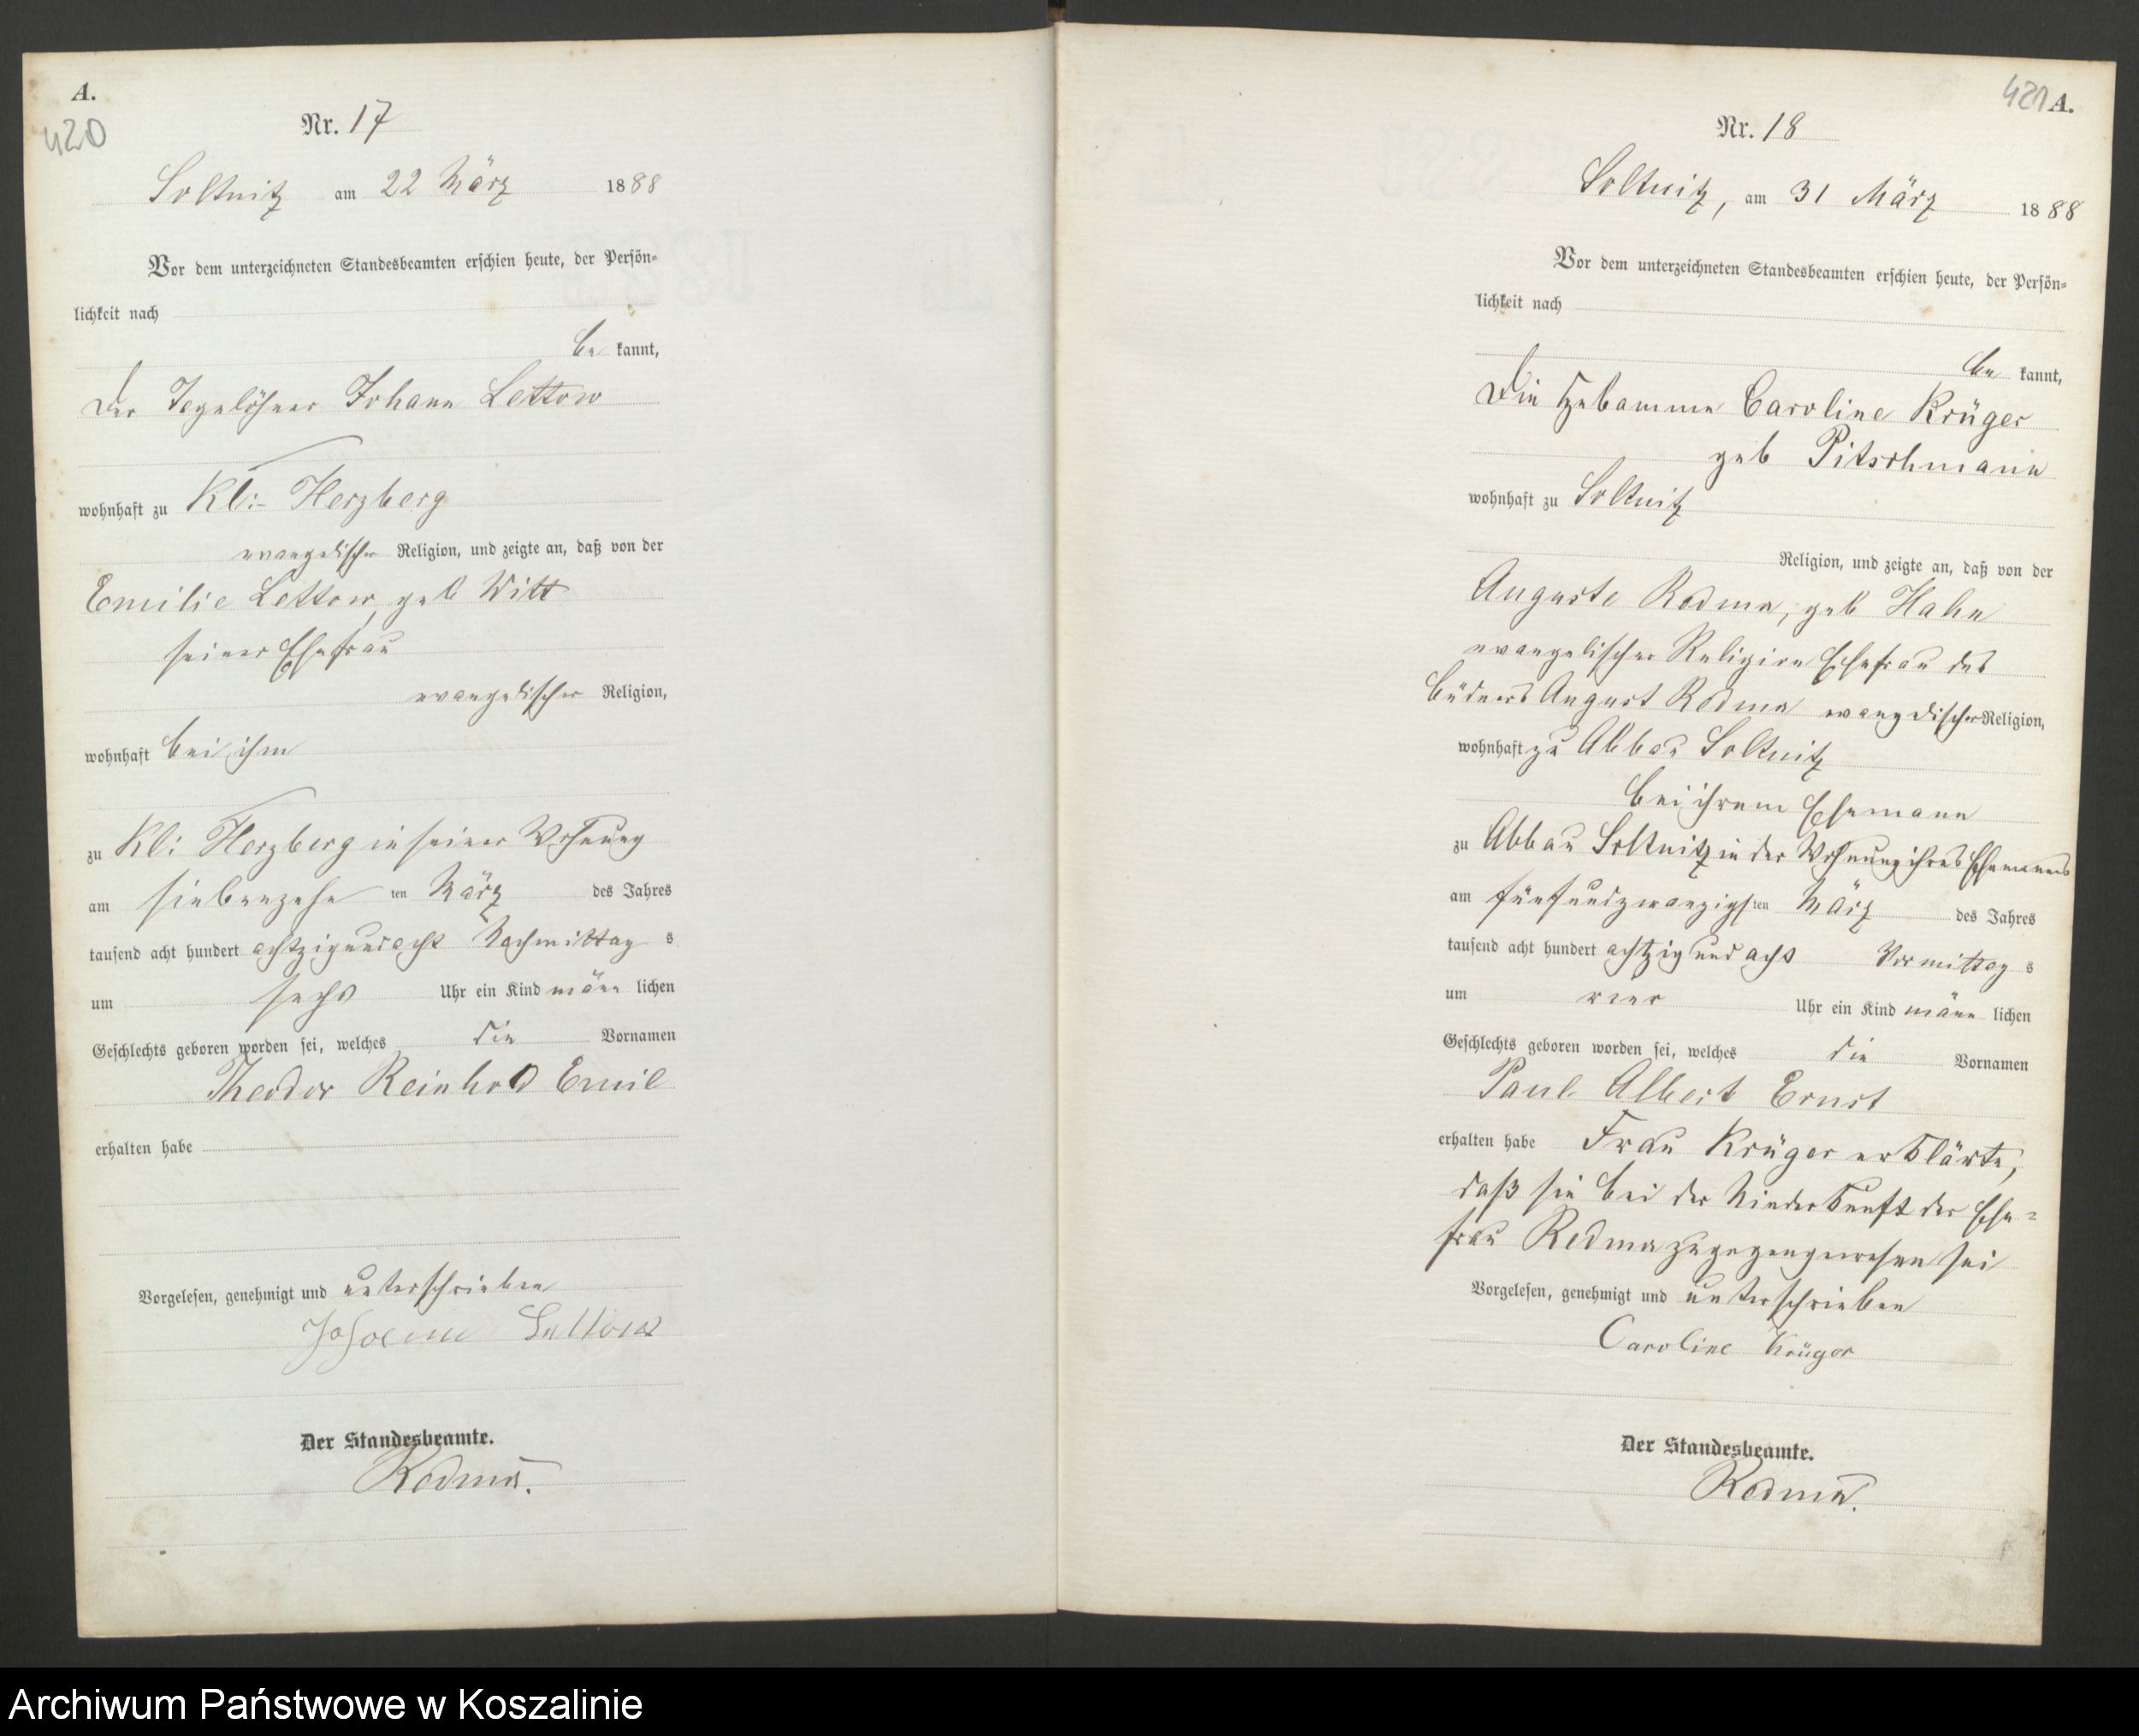 A.
420
Nr. 17
Soltnitz am 22 März 1888
Vor dem unterzeichneten Standesbeamten erschien heute, der Persön-
lichkeit nach
be kannt,
der Tagelöhner Johann Lettow
wohnhaft zu Kl: Herzberg
evangelischer Religion, und zeigte an, daß von der
Emilie Lettow, geb Witt
seiner Ehefrau
evangelischer Religion,
wohnhaft bei ihm
zu Kl: Herzberg in seiner Wohnung
am siebenzehn ten März des Jahres
tausend acht hundert achtzig und acht Nachmittag s
um sechs Uhr ein Kind männ lichen
Geschlechts geboren worden sei, welches die Vornamen
Theodor Reinhold Emil
erhalten habe
Vorgelesen, genehmigt und unterschrieben
Johann Lettow
Der Standesbeamte.
Redmer.
421 A.
Nr. 18
Soltnitz, am 31 März 1888
Vor dem unterzeichneten Standesbeamten erschien heute, der Persön-
lichkeit nach
be kannt,
Die Hebamme Caroline Krüger
geb Pitschmann
wohnhaft zu Soltnitz
Religion, und zeigte an, daß von der
Auguste Redmer, geb Hahn
evangelischer Religion Ehefrau des
Büdners August Redmer evangelischer Religion,
wohnhaft zu Abbau Soltnitz
bei ihrem Ehemann
zu Abbau Soltnitz in der Wohnung ihres Ehemannes
am fünfundzwanzigs ten März des Jahres
tausend acht hundert achtzig und acht Vormittag s
um vier Uhr ein Kind männ lichen
Geschlechts geboren worden sei, welches die Vornamen
Paul Albert Ernst
erhalten habe Frau Krüger erklärte,
daß sie bei der Niederkunft der Ehe-
frau Redmer zugegen gewesen sei
Vorgelesen, genehmigt und unterschrieben
Caroline Krüger
Der Standesbeamte.
Redmer.
Archiwum Państwowe w Koszalinie